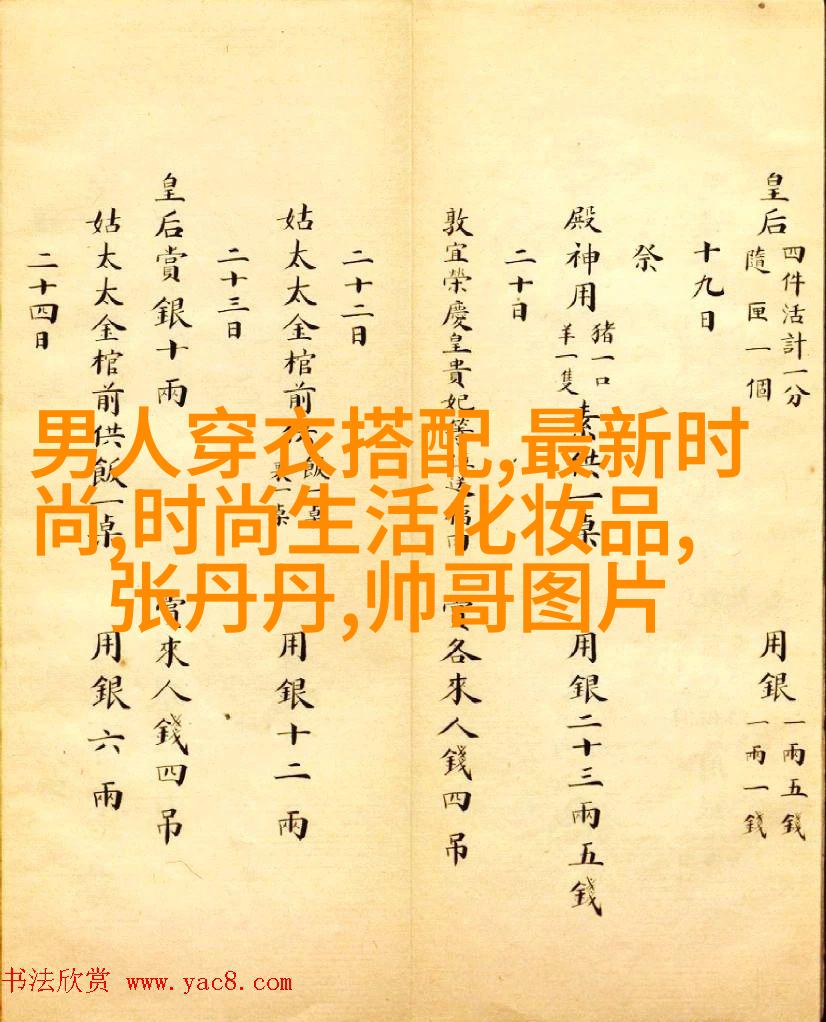 皇后 四件活計一分 隨匣一個 用銀 一兩五錢 一兩一錢
十九日
祭
殿神用 豬一口 羊一隻 素供一桌 用銀二十三兩五錢
二十日
敦宜榮慶皇貴妃等 送福肉 賞各來人錢四吊
二十二日
姑太太金棺前供 飯一桌 一桌 用銀十二兩
二十三日
皇后賞銀十兩 賞來人錢四吊
姑太太金棺前供飯一桌 用銀六兩
二十四日
男人穿衣搭配,最新时
尚,时尚生活化妆品,
张丹丹,帅哥图片
书法欣赏 www.yac8.com